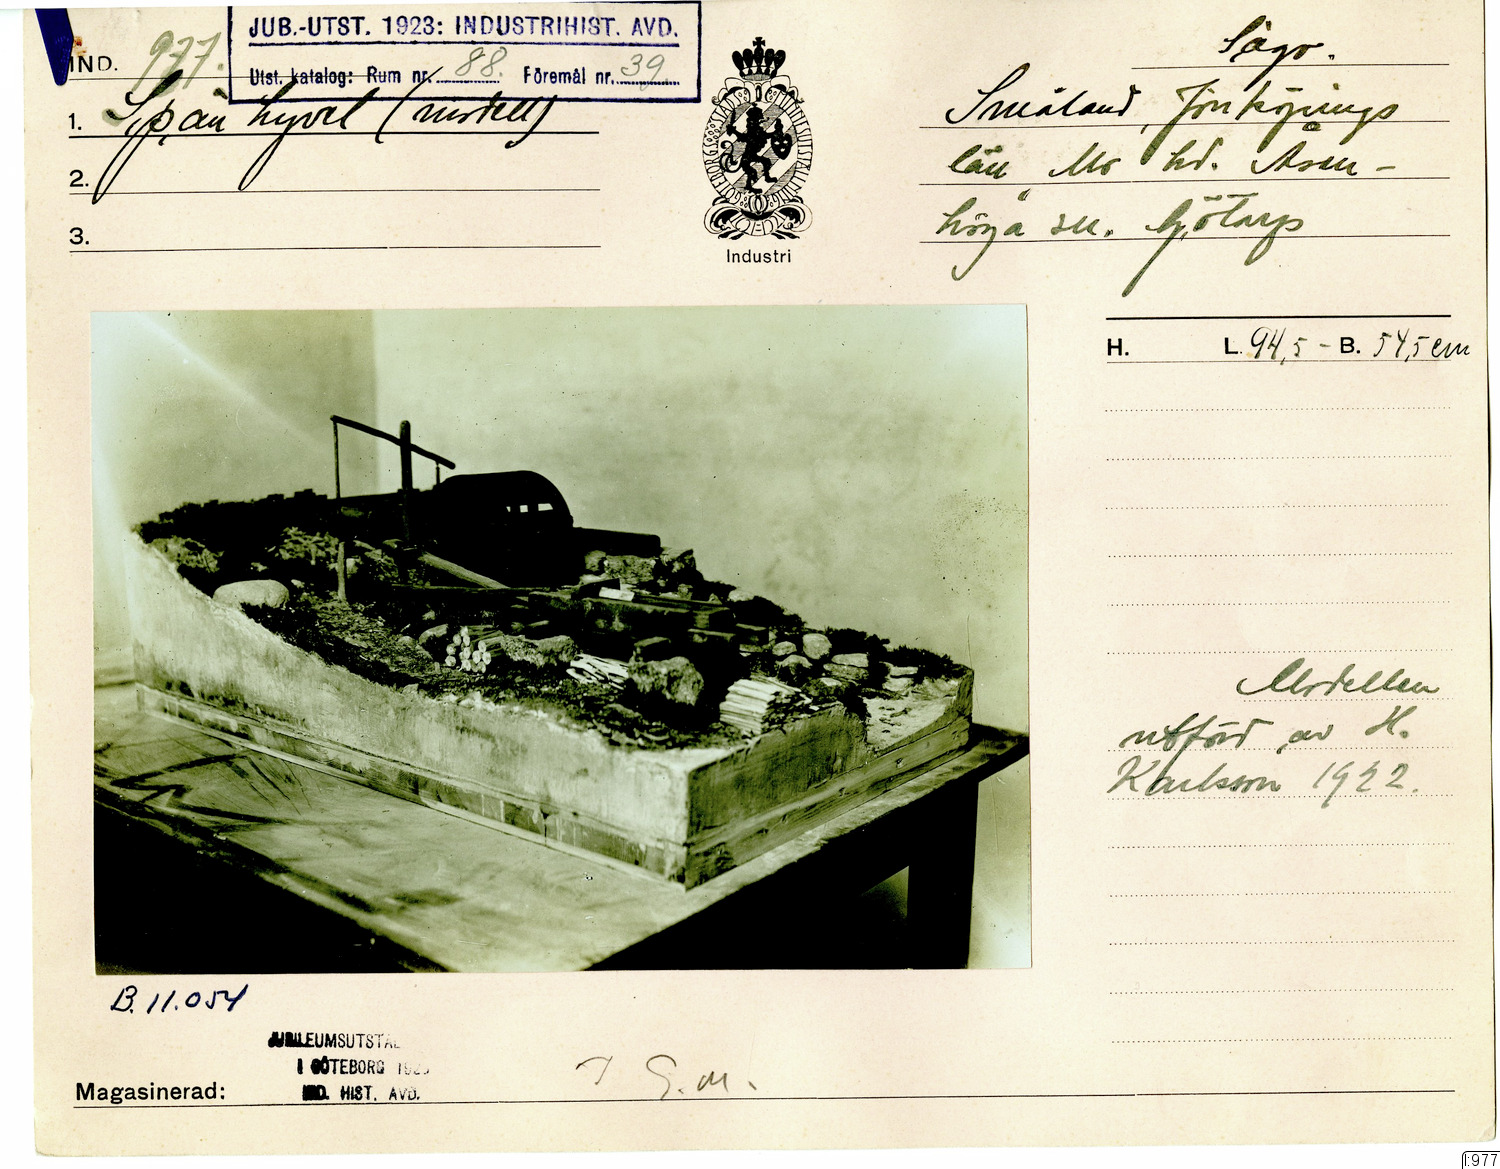 JUB.-UTST. 1923: INDUSTRIHIST. AVD.
Utst. katalog: Rum nr. 88. Föremål nr. 39
IND. 977.
1. Spån hyvel (modell)
2.
3.
GÖTEBORGS STADS MINNESUTSTÄLLNING
Industri
Småland, Jönköpings
län Mo hd. Åsen-
höga sn. Götarp
H. L. 94,5 - B. 54,5 cm
Modellen
utförd av H.
Karlsson 1922.
B. 11.054
JUBILEUMSUTSTÄL
I GÖTEBORG 1923
IND. HIST. AVD.
Magasinerad:
G.M.
I:977